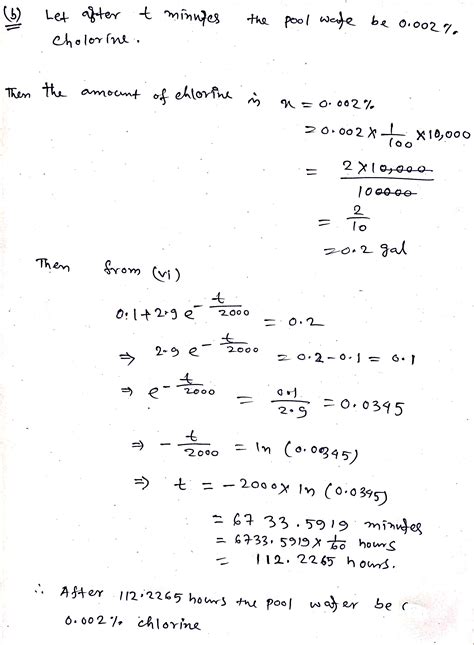 (b) Let after t minutes the pool wate be 0.002 %
cholorine.
Then the amount of chlorine is x = 0.002%
= 0.002 × 1/100 × 10,000
= 2×10,000/100000
= 2/10
= 0.2 gal
Then from (vi)
0.1 + 2.9 e^(-t/2000) = 0.2
⇒ 2.9 e^(-t/2000) = 0.2 - 0.1 = 0.1
⇒ e^(-t/2000) = 0.1/2.9 = 0.0345
⇒ -t/2000 = ln (0.0345)
⇒ t = -2000 × ln (0.0345)
= 6733.5919 minutes
= 6733.5919 × 1/60 hours
= 112.2265 hours.
∴ After 112.2265 hours the pool water be
0.002% chlorine